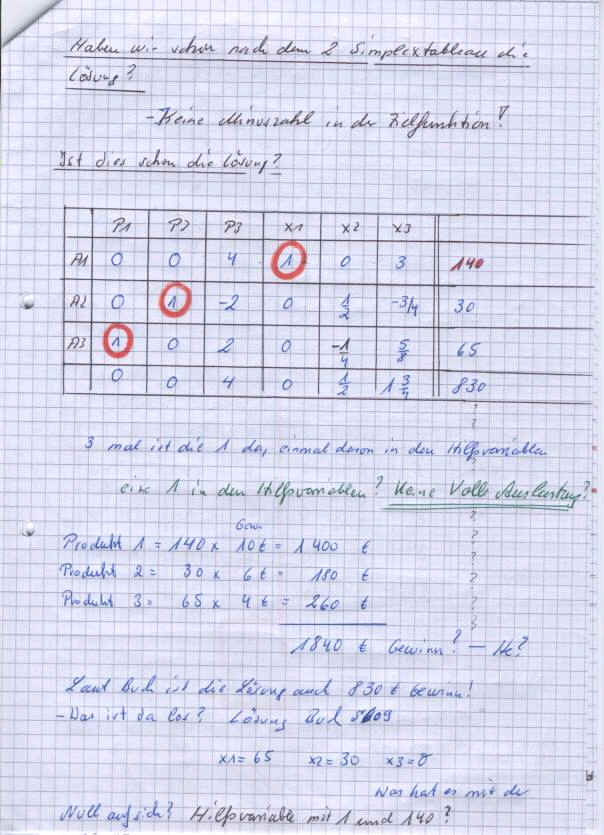 Haben wir schon nach dem 2 Simplextableau die
Lösung?
- Keine Minuszahl in der Zielfunktion!
Ist dies schon die Lösung?
P1 P2 P3 x1 x2 x3
A1 0 0 4 1 0 3 140
A2 0 1 -2 0 1/2 -3/4 30
A3 1 0 2 0 -1/4 5/8 65
0 0 4 0 1/2 1 3/4 830
3 mal ist die 1 da, einmal davon in den Hilfsvariablen
eine 1 in den Hilfsvariablen? Keine Volle Auslastung?
?
?
?
?
?
?
Gewinn
Produkt 1 = 140 x 10 € = 1400 €
Produkt 2 = 30 x 6 € = 180 €
Produkt 3 = 65 x 4 € = 260 €
1840 € Gewinn? - Ne?
Laut Buch ist die Lösung auch 830 € Gewinn!
- Was ist da los? Lösung Buch
x1 = 65 x2 = 30 x3 = 0
Was hat es mit der
Null auf sich? Hilfsvariable mit 1 und 140?